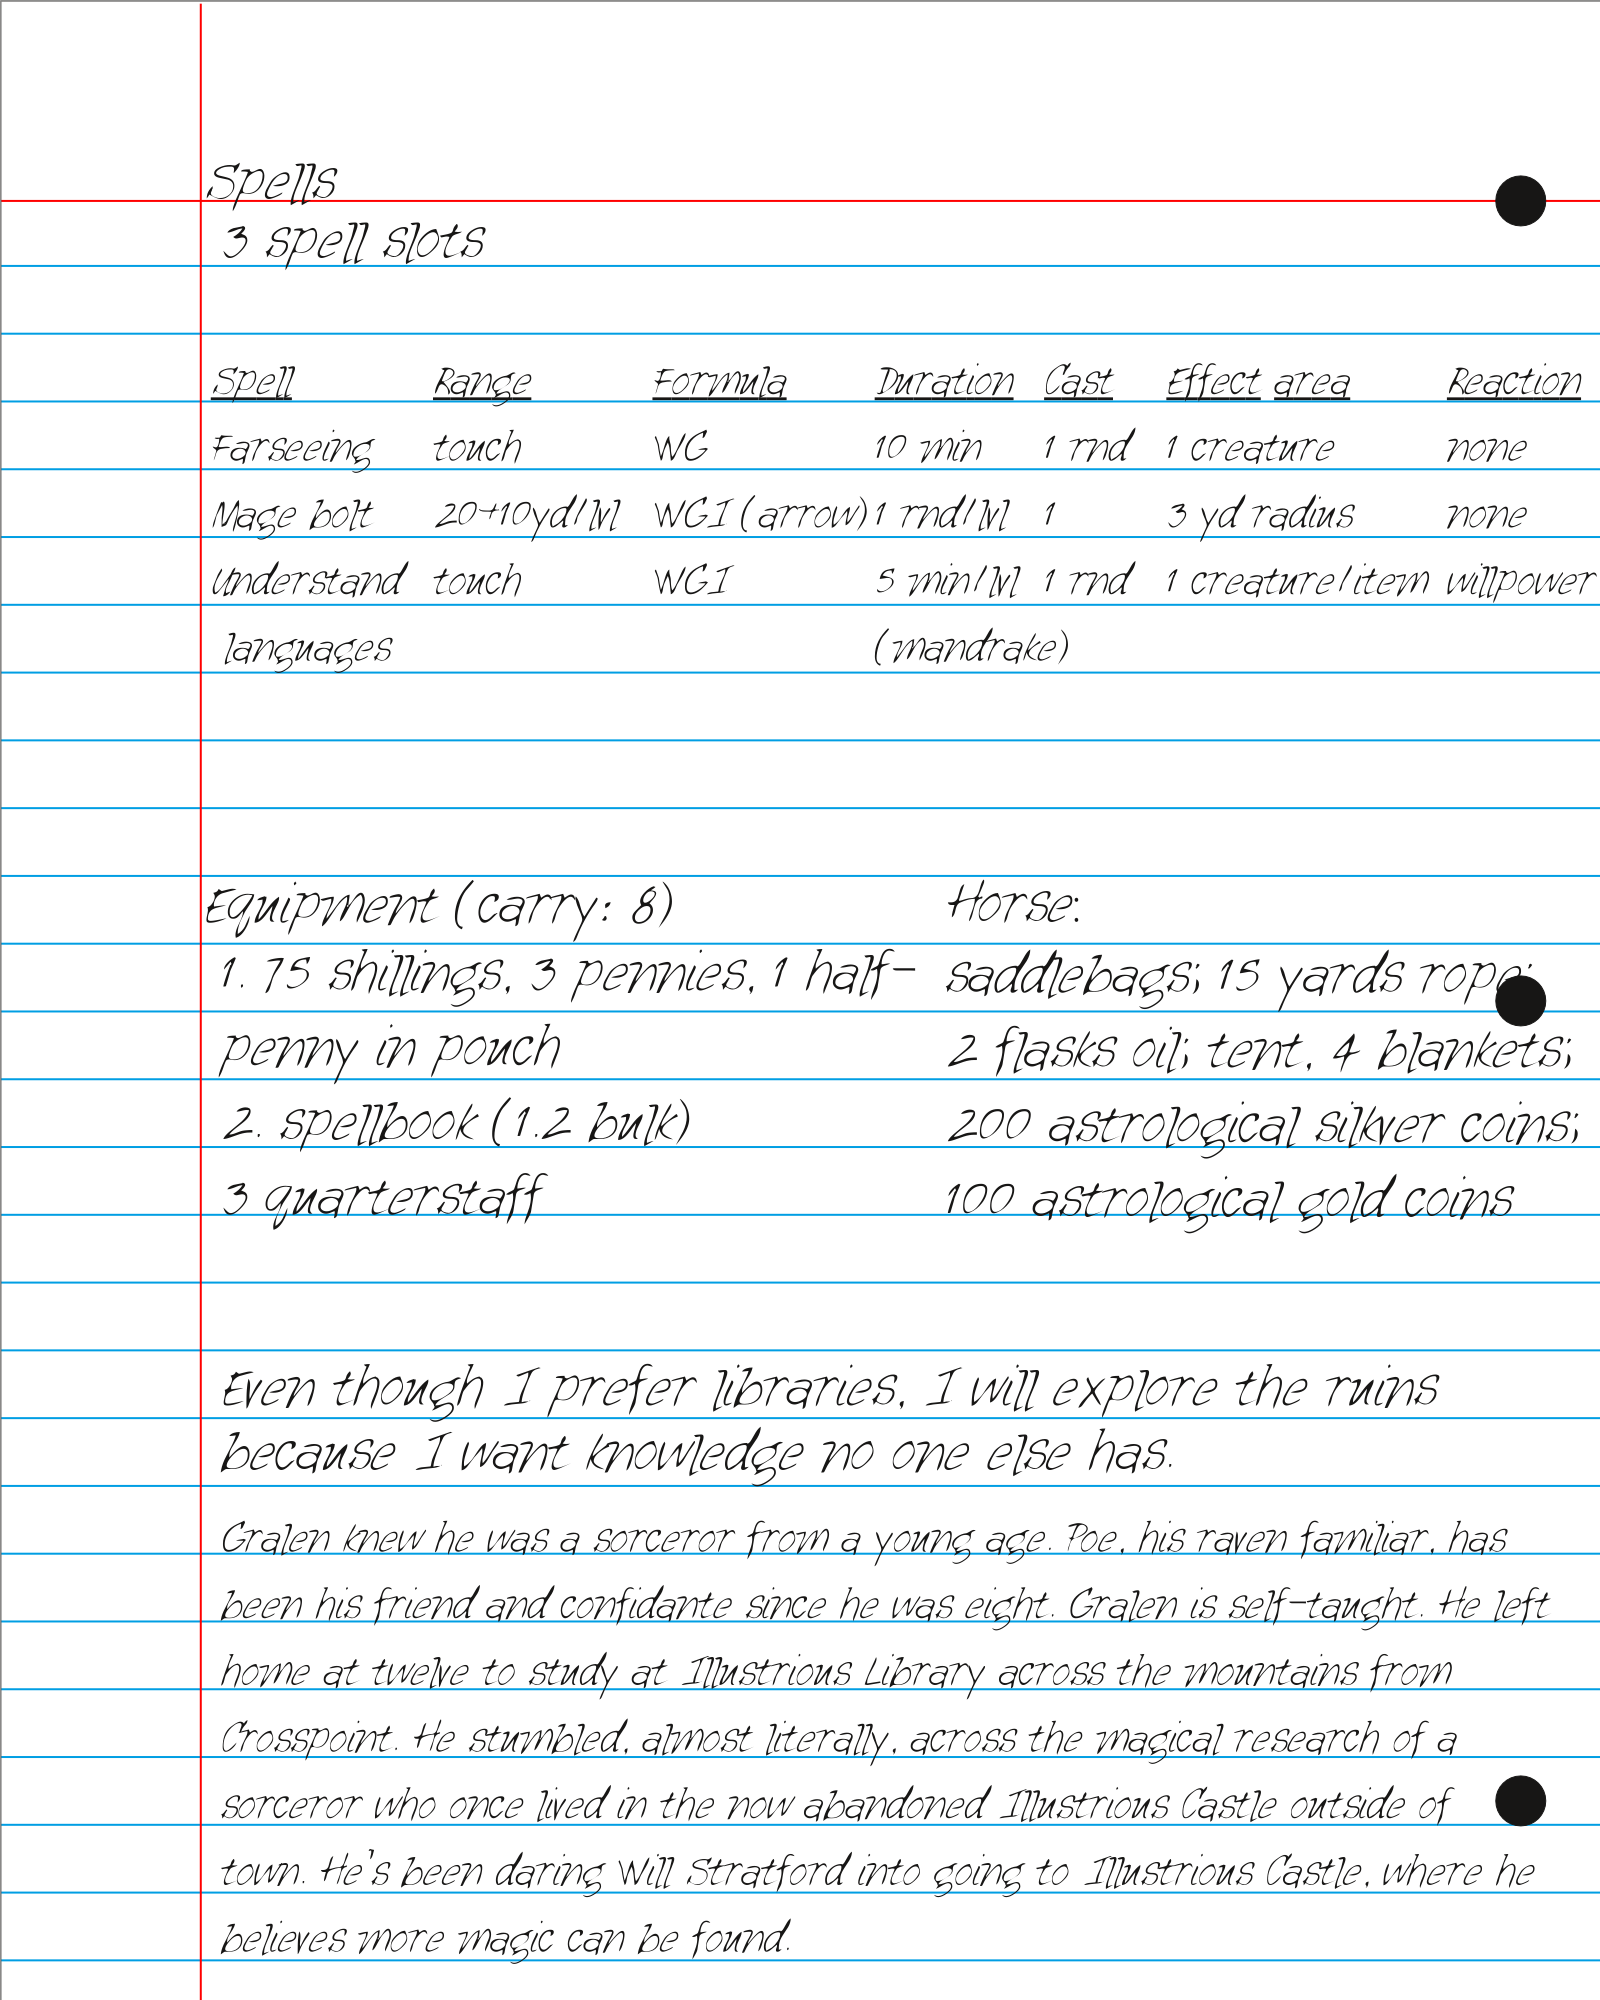 Spells
3 spell slots
Spell Range Formula Duration Cast Effect area Reaction
Farseeing touch WG 10 min 1 rnd 1 creature none
Mage bolt 20+10yd/lvl WGI (arrow) 1 rnd/lvl 1 3 yd radius none
Understand touch WGI 5 min/lvl 1 rnd 1 creature/item willpower
languages (mandrake)
Equipment (carry: 8)
1. 75 shillings, 3 pennies, 1 half-
penny in pouch
2. spellbook (1.2 bulk)
3 quarterstaff
Horse:
saddlebags; 15 yards rope;
2 flasks oil; tent, 4 blankets;
200 astrological silkver coins;
100 astrological gold coins
Even though I prefer libraries, I will explore the ruins
because I want knowledge no one else has.
Gralen knew he was a sorceror from a young age. Poe, his raven familiar, has
been his friend and confidante since he was eight. Gralen is self-taught. He left
home at twelve to study at Illustrious Library across the mountains from
Crosspoint. He stumbled, almost literally, across the magical research of a
sorceror who once lived in the now abandoned Illustrious Castle outside of
town. He's been daring Will Stratford into going to Illustrious Castle, where he
believes more magic can be found.